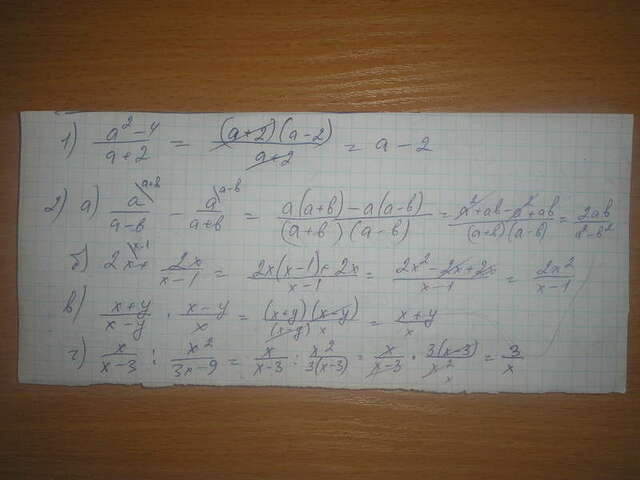 1) \frac{a^2-4}{a+2} = \frac{(a+2)(a-2)}{a+2} = a-2
2) а) \frac{a^{\a+b}}{a-b} - \frac{a^{\a-b}}{a+b} = \frac{a(a+b)-a(a-b)}{(a+b)(a-b)} = \frac{a^2+ab-a^2+ab}{(a+b)(a-b)} = \frac{2ab}{a^2-b^2}
б) 2x^{\x-1} + \frac{2x}{x-1} = \frac{2x(x-1)+2x}{x-1} = \frac{2x^2-2x+2x}{x-1} = \frac{2x^2}{x-1}
в) \frac{x+y}{x-y} · \frac{x-y}{x} = \frac{(x+y)(x-y)}{(x-y)x} = \frac{x+y}{x}
г) \frac{x}{x-3} : \frac{x^2}{3x-9} = \frac{x}{x-3} : \frac{x^2}{3(x-3)} = \frac{x}{x-3} · \frac{3(x-3)}{x^2} = \frac{3}{x}